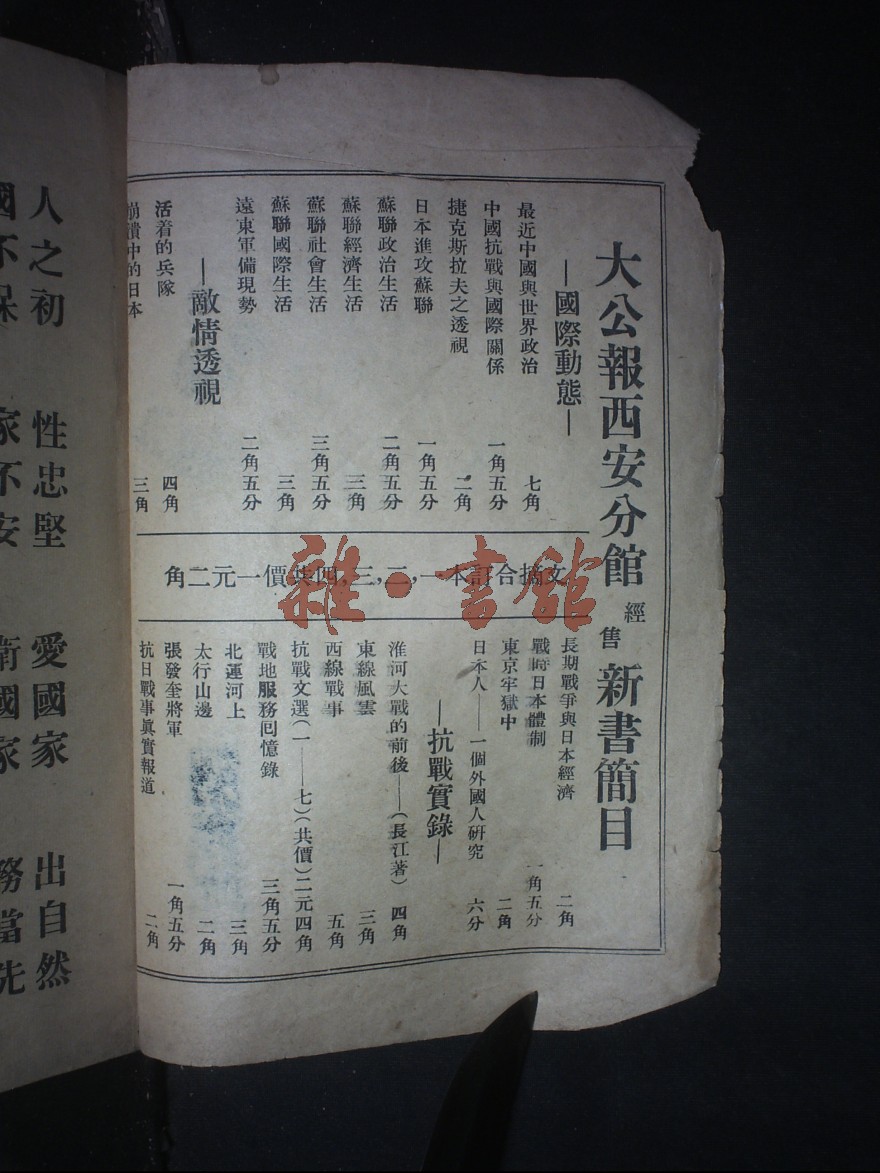 大公報西安分館經售新書簡目
—國際動態—
最近中國與世界政治 七角
中國抗戰與國際關係 一角五分
捷克斯拉夫之透視 二角
日本進攻蘇聯 一角五分
蘇聯政治生活 二角五分
蘇聯經濟生活 三角
蘇聯社會生活 三角五分
蘇聯國際生活 三角
遠東軍備現勢 二角五分
—敵情透視
活着的兵隊 四角
崩潰中的日本 三角
文摘合訂本一,二,三,四共價一元二角
長期戰爭與日本經濟 二角
戰時日本體制 一角五分
東京牢獄中 二角
日本人——一個外國人研究 六分
—抗戰實錄—
淮河大戰的前後——(長江著) 四角
東線風雲 三角
西線戰事 五角
抗戰文選(一——七)(共價)二元四角
戰地服務囘憶錄 三角五分
北運河上 三角
太行山邊 二角
張發奎將軍 一角五分
抗日戰事眞實報道 二角
人之初 性忠堅 愛國家 出自然
國不保 家不安 衛國家 務當先
雜·書館